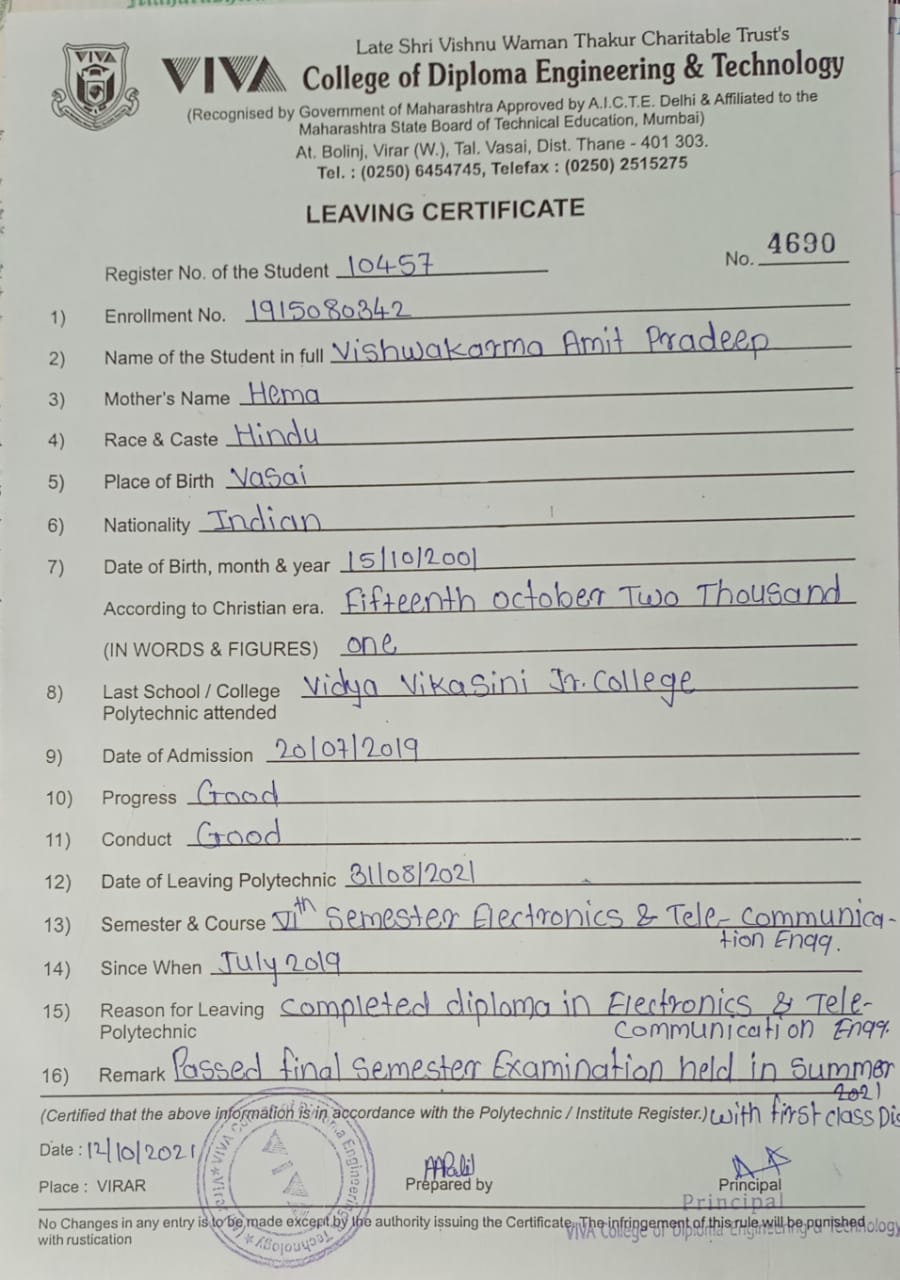 VIVA
Late Shri Vishnu Waman Thakur Charitable Trust's
VIVA College of Diploma Engineering & Technology
(Recognised by Government of Maharashtra Approved by A.I.C.T.E. Delhi & Affiliated to the
Maharashtra State Board of Technical Education, Mumbai)
At. Bolinj, Virar (W.), Tal. Vasai, Dist. Thane - 401 303.
Tel. : (0250) 6454745, Telefax : (0250) 2515275
LEAVING CERTIFICATE
Register No. of the Student 10457 No. 4690
1) Enrollment No. 1915080342
2) Name of the Student in full Vishwakarma Amit Pradeep
3) Mother's Name Hema
4) Race & Caste Hindu
5) Place of Birth Vasai
6) Nationality Indian
7) Date of Birth, month & year 15/10/2001
According to Christian era. Fifteenth october Two Thousand
(IN WORDS & FIGURES) one
8) Last School / College Vidya Vikasini Jr. College
Polytechnic attended
9) Date of Admission 20/07/2019
10) Progress Good
11) Conduct Good
12) Date of Leaving Polytechnic 31/08/2021
13) Semester & Course VIth Semester Electronics & Tele-communica-
tion Engg.
14) Since When July 2019
15) Reason for Leaving completed diploma in Electronics & Tele-
Polytechnic communication Engg.
16) Remark Passed final Semester Examination held in Summer
2021
(Certified that the above information is in accordance with the Polytechnic / Institute Register.) with first class Dis
Date : 12/10/2021
Prepared by Principal
Place : VIRAR
Principal
No Changes in any entry is to be made except by the authority issuing the Certificate. The infringement of this rule will be punished
VIVA College of Diploma Engineering & Technology
with rustication